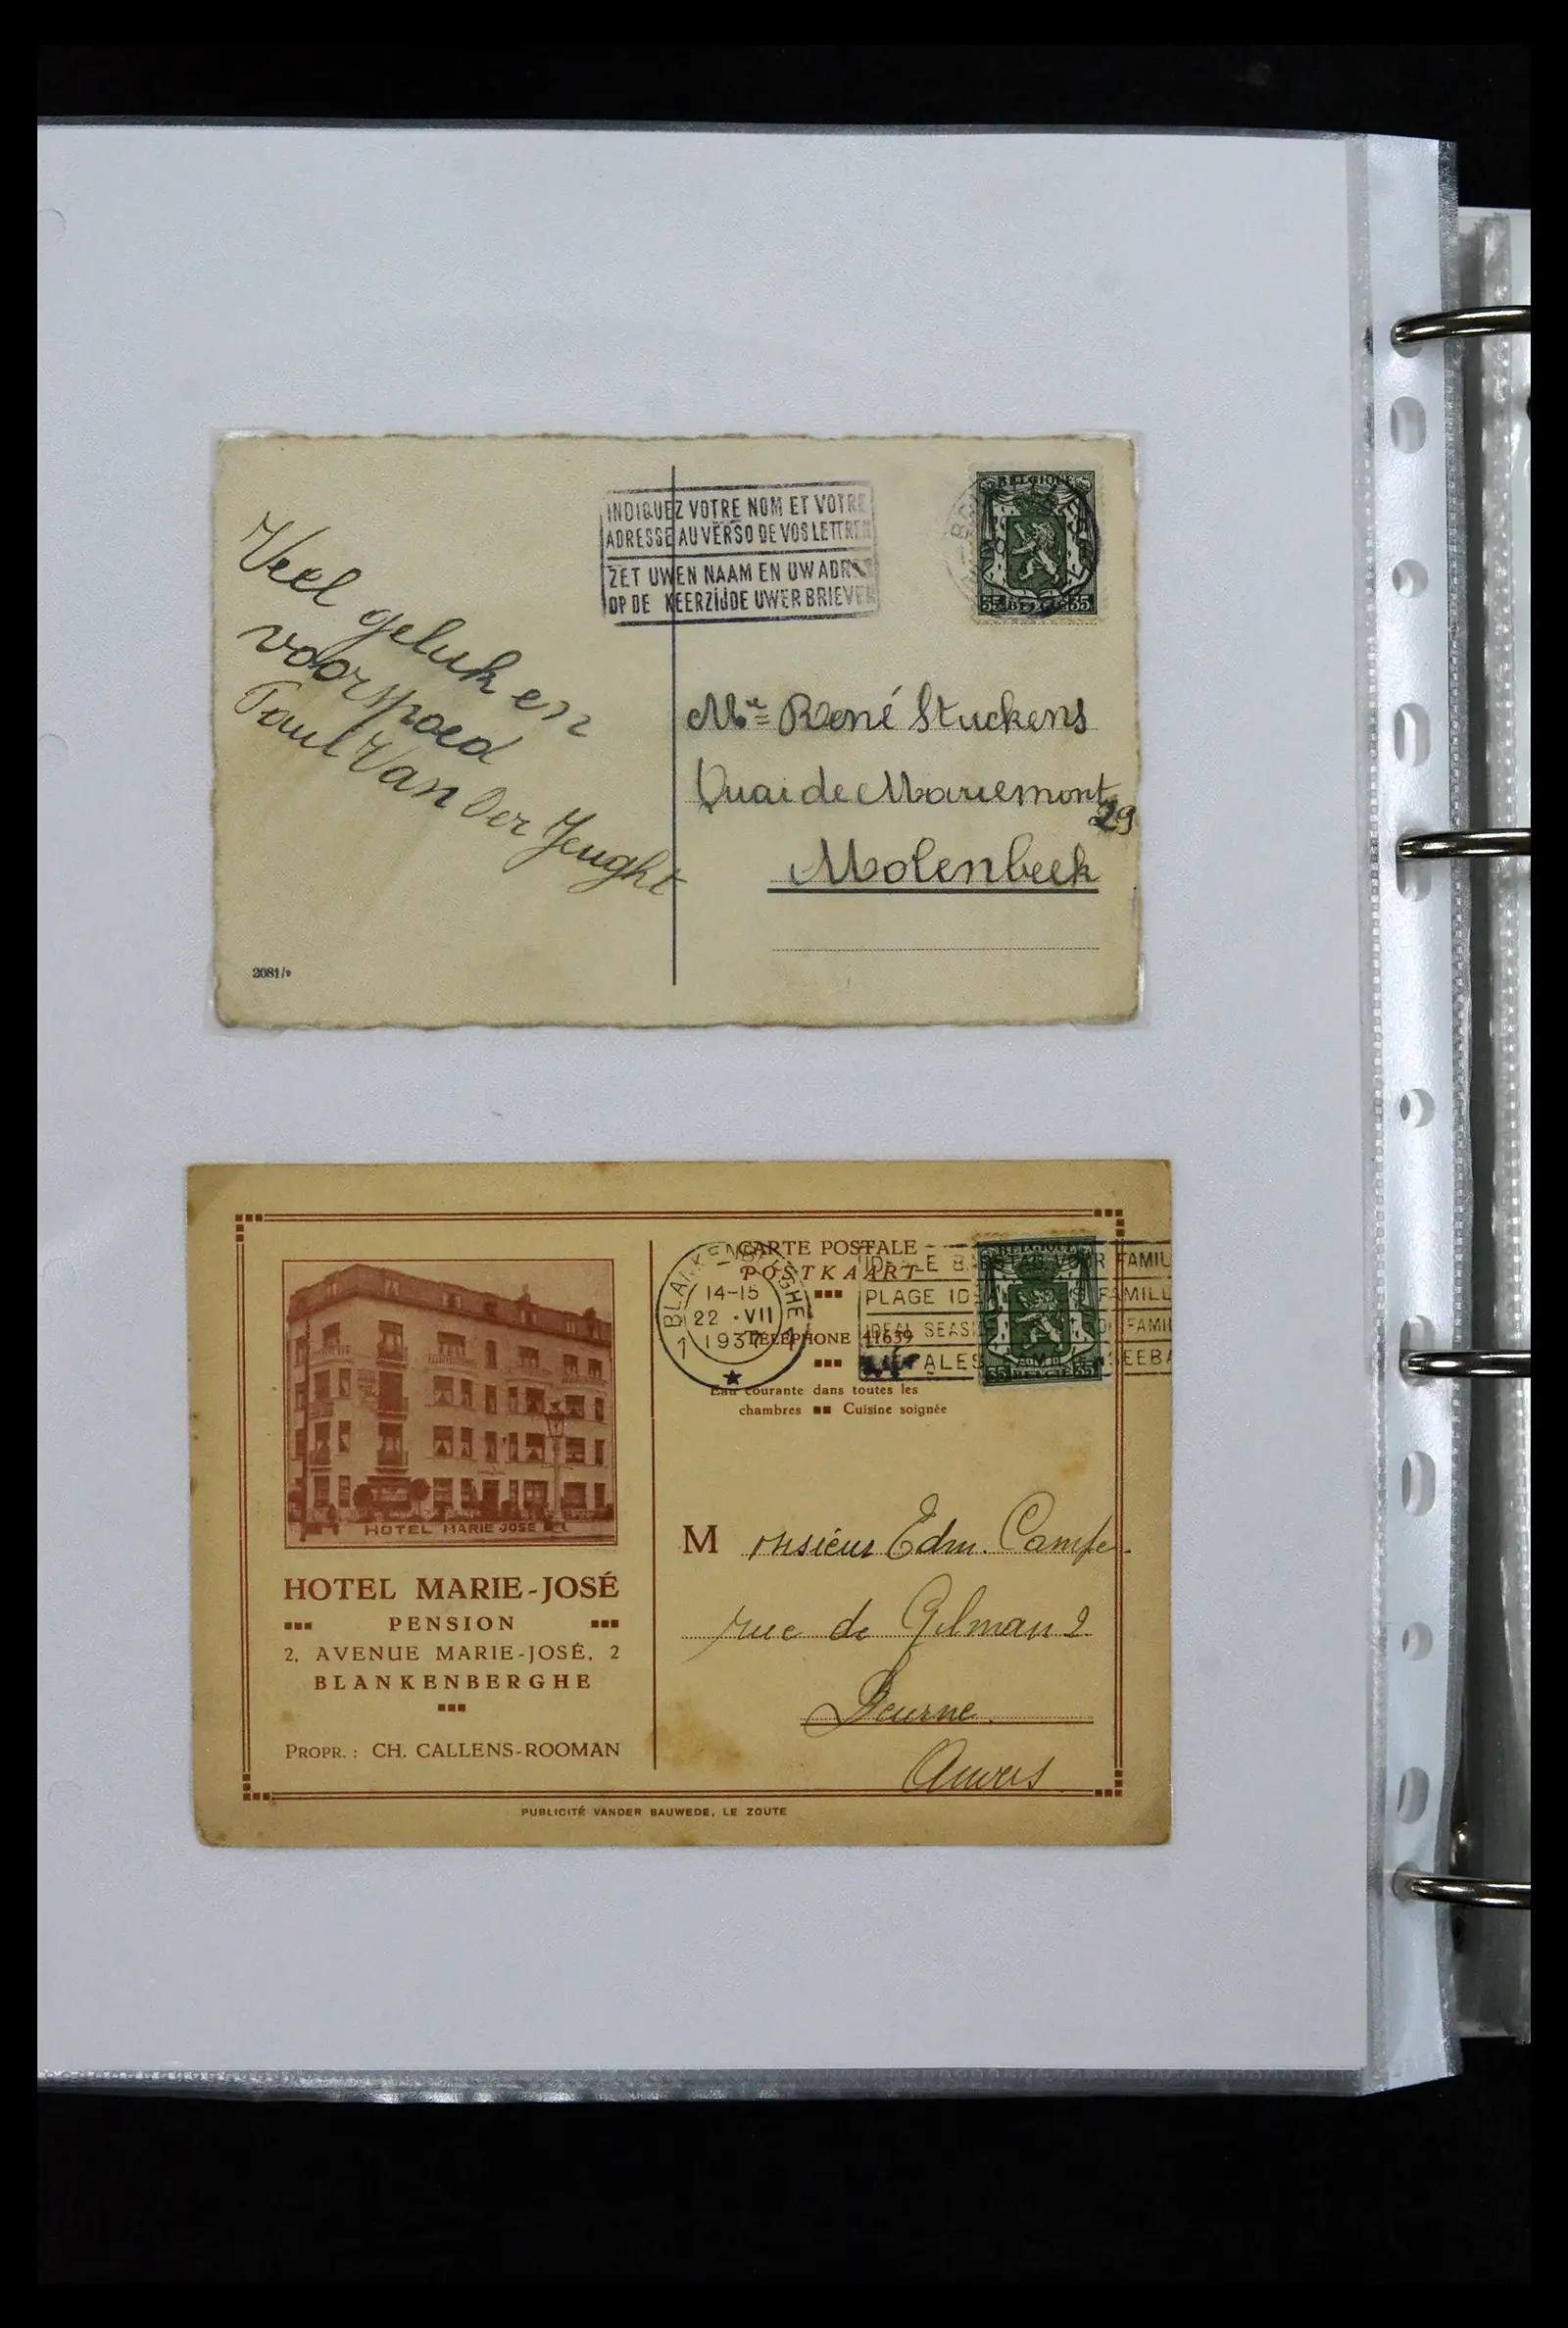 Veel
geluk en
voorspoed
Paul Van Der
INDIQUEZ VOTRE NOM ET VOTRE
ADRESSE AU VERSO DE VOS LETTRES
ZET UWEN NAAM EN UW ADRES
OP DE KEERZIJDE UWER BRIEVEN
BELGIQUE
35 BELGIE 35
René Stuckens
Quai de Mariemont
29
Molenbeek
2081/
HOTEL MARIE-JOSÉ
HOTEL MARIE-JOSÉ
PENSION
2, AVENUE MARIE-JOSÉ, 2
BLANKENBERGHE
PROPR. : CH. CALLENS-ROOMAN
CARTE POSTALE
POSTKAART
TÉLÉPHONE 41639
Eau courante dans toutes les
chambres Cuisine soignée
BLANKENBERGHE
14-15
22 .VII
1937
1 1
VOOR FAMIL
PLAGE FAMILL
IDEAL SEASI FAMI
SEEBA
BELGIQUE
35 BELGIE 35
Monsieur Edm.
rue de Gilman 2
Deurne
Anvers
PUBLICITÉ VANDER BAUWEDE, LE ZOUTE